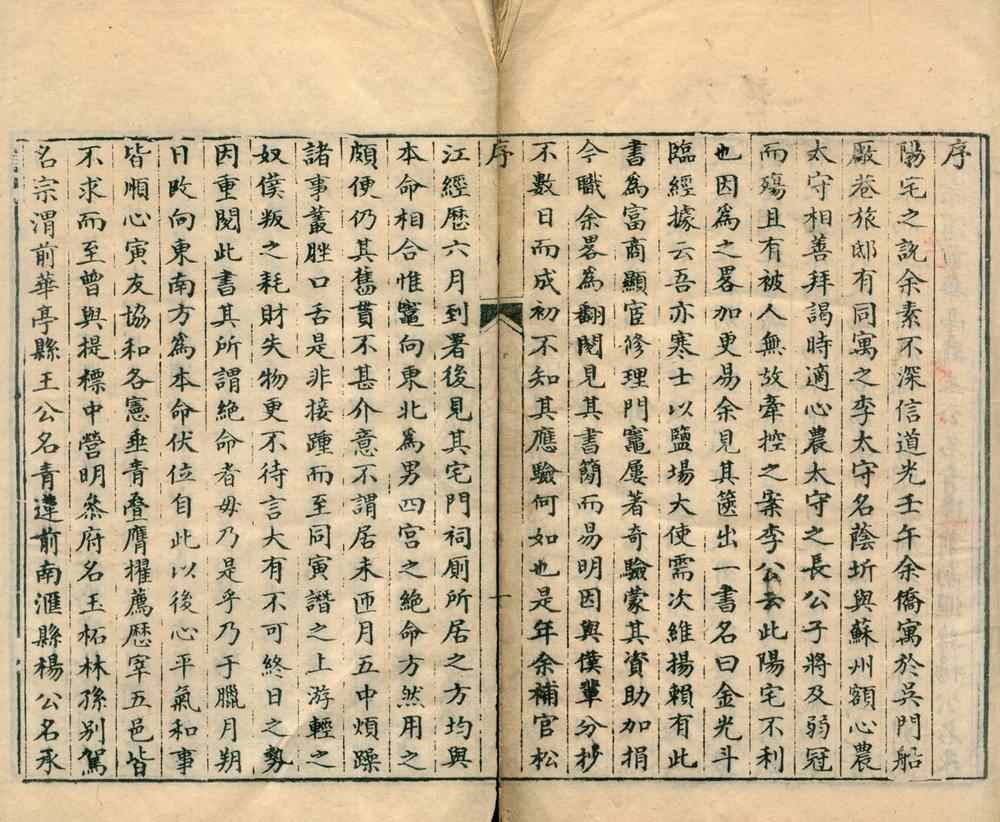 序
陽宅之説余素不深信道光壬午余僑寓於吳門船
厰巷旅邸有同寓之李太守名蔭圻與蘇州額心農
太守相善拜謁時適心農太守之長公子將及弱冠
而殤且有被人無故牽控之案李公云此陽宅不利
也因為之畧加更易余見其篋出一書名曰金光斗
臨經據云吾亦寒士以鹽場大使需次維揚賴有此
書為富商顯宦修理門竈屢著奇驗蒙其資助加捐
今職余畧為翻閱見其書簡而易明因與僕輩分抄
不數日而成初不知其應驗何如也是年余補官松
序
一
江經歷六月到署後見其宅門祠厠所居之方均與
本命相合惟竈向東北為男四宮之絶命方然用之
頗便仍其舊貫不甚介意不謂居未匝月五中煩躁
諸事叢脞口舌是非接踵而至同寅譖之上游輕之
奴僕叛之耗財失物更不待言大有不可終日之勢
因重閱此書其所謂絶命者毋乃是乎乃于臘月朔
日改向東南方為本命伏位自此以後心平氣和事
皆順心寅友協和各憲垂青叠膺擢薦歷宰五邑皆
不求而至曾與提標中營明叅府名玉柘林孫别駕
名宗渭前華亭縣王公名青蓮前南滙縣楊公名承